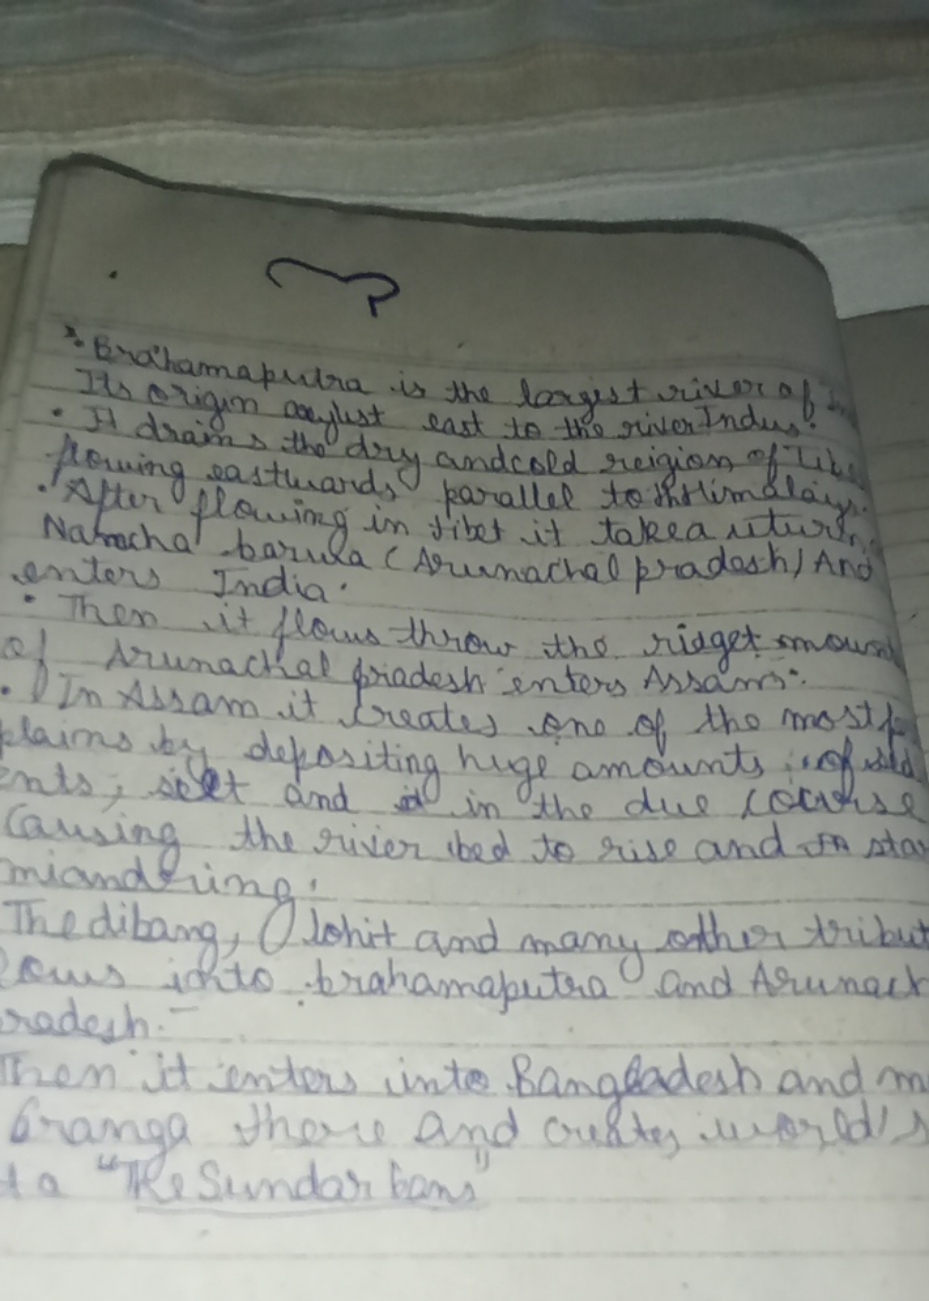 Brahamaputra is the largest river of
Its origin just east to the river Indus.
• It drains the dry and cold reigion of Tibe
flowing eastwards parallel to the Himalaya.
• After flowing in tibet it take a uturn
Namcha barula (Arunachal pradesh) And
enters India.
• Then it flows throw the ridget moun
of Arunachal pradesh enters Assam.
• In Assam it creates one of the most
plains by depositing huge amounts of
ents, and in the due course
Causing the river bed to rise and sta
miandring.
The dibang, lohit and many other tribut
lows into brahamaputra and Arunach
radesh.
Then it enters into Bangladesh and m
Granga there and creates world's
ta "The Sundar bans"